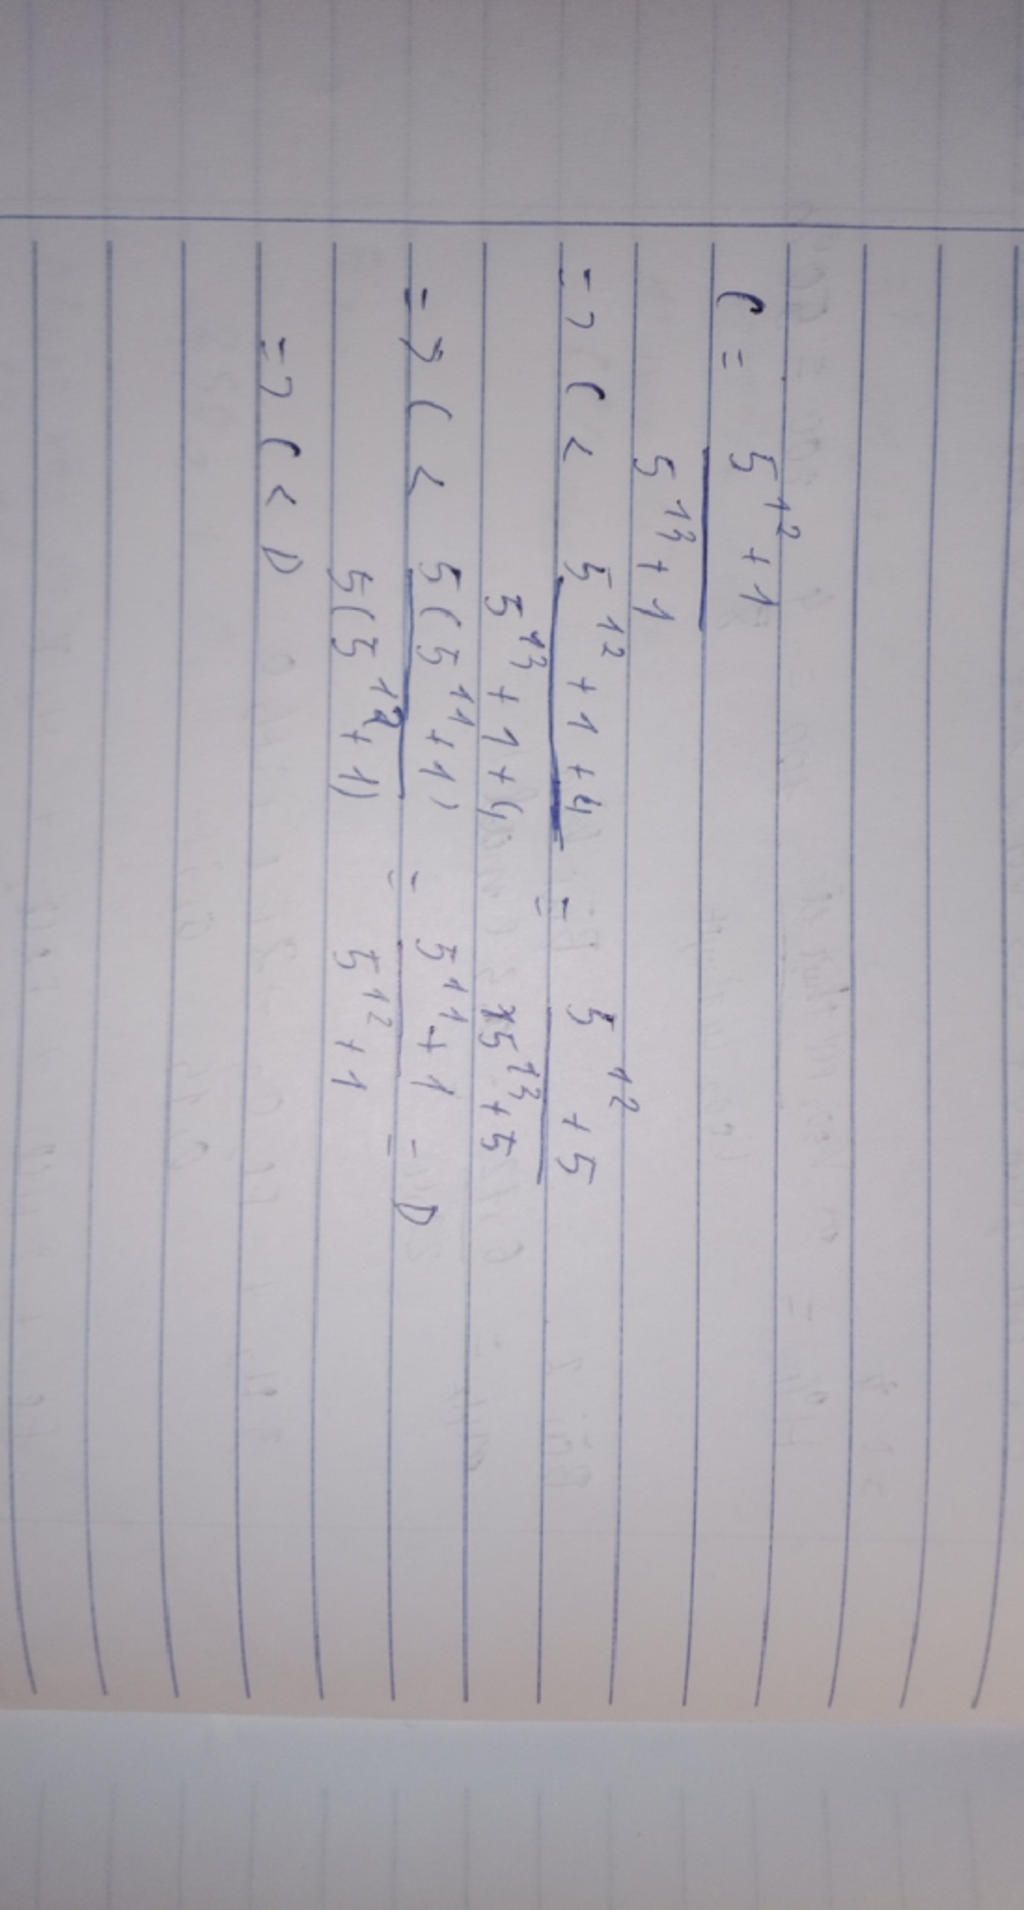 C = 5^12 + 1 / 5^13 + 1
=> C < 5^12 + 1 + 4 / 5^13 + 1 + 4 = 5^12 + 5 / 5^13 + 5
=> C < 5(5^11 + 1) / 5(5^12 + 1) = 5^11 + 1 / 5^12 + 1 = D
=> C < D